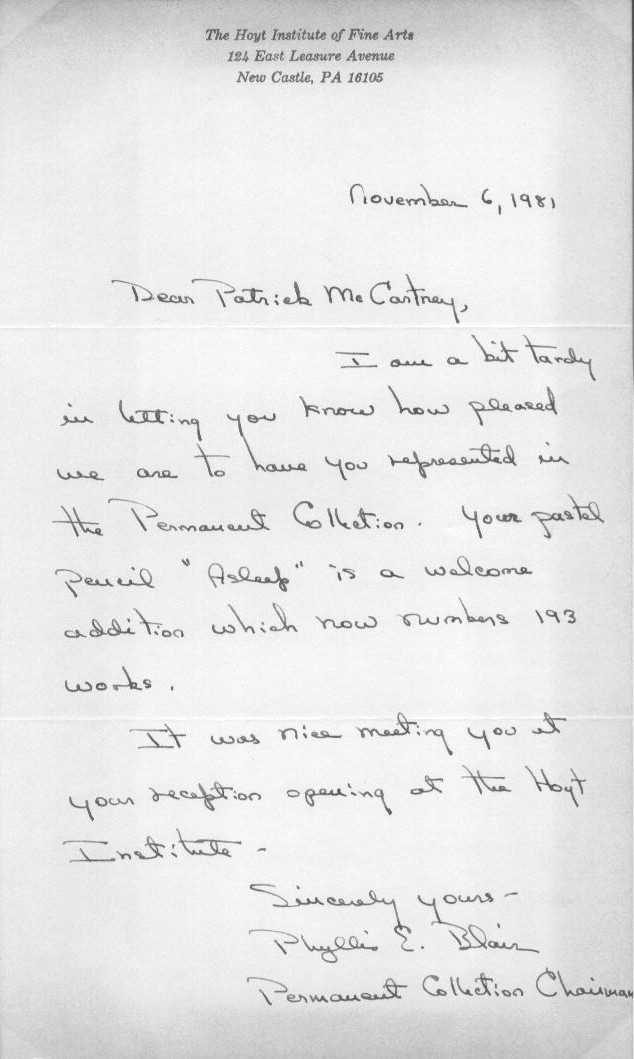 The Hoyt Institute of Fine Arts
124 East Leasure Avenue
New Castle, PA 16105
November 6, 1981
Dear Patrick McCartney,
I am a bit tardy
in letting you know how pleased
we are to have you represented in
the Permanent Collection. Your pastel
pencil "Asleep" is a welcome
addition which now numbers 193
works.
It was nice meeting you at
your reception opening at the Hoyt
Institute -
Sincerely yours -
Phyllis E. Blair
Permanent Collection Chairman